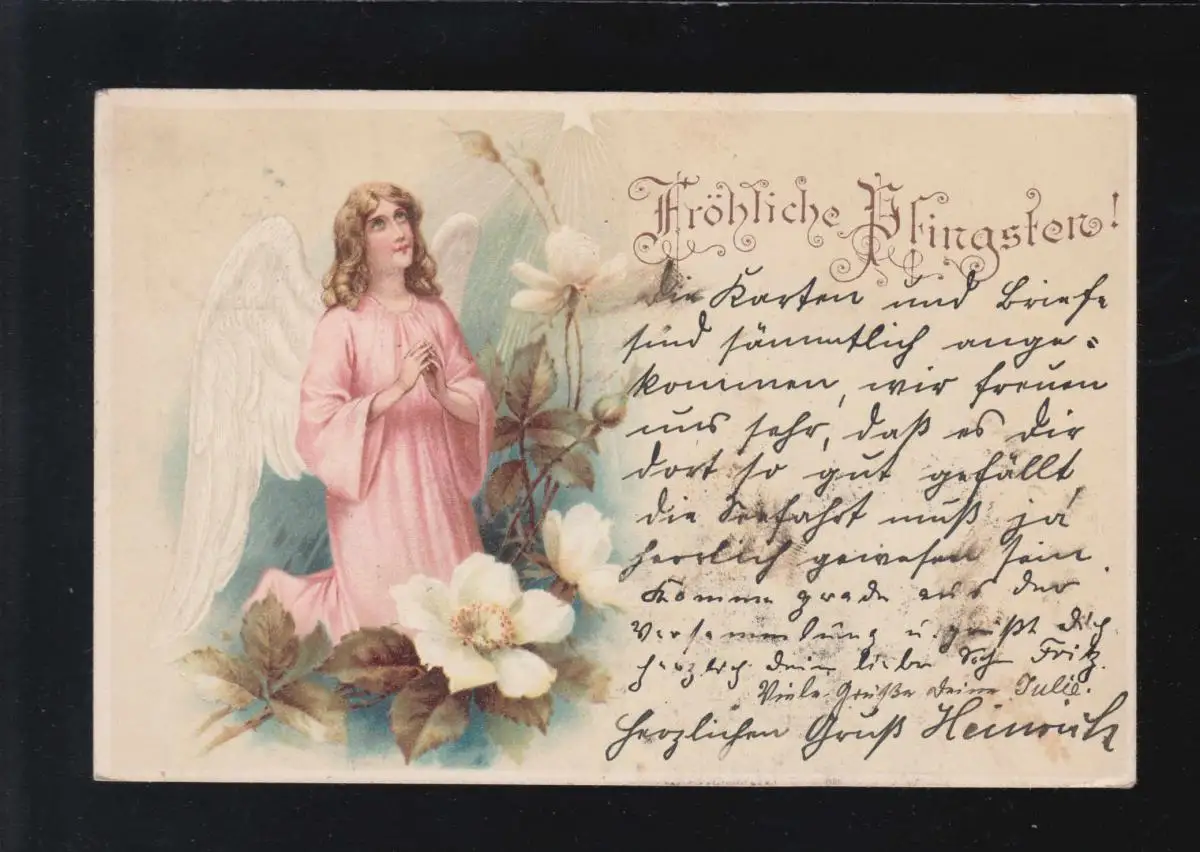 Fröhliche Pfingsten!
Die Karten und Briefe
sind sämmtlich ange-
kommen, wir freuen
uns sehr, daß es Dir
dort so gut gefällt,
die Seefahrt muß ja
herrlich gewesen sein.
Komme grade aus der
Versammlung u. grüßt Dich
herzlich dein lieber Fritz.
Viele Grüße Deine Julie.
Herzlichen Gruß Heinrich